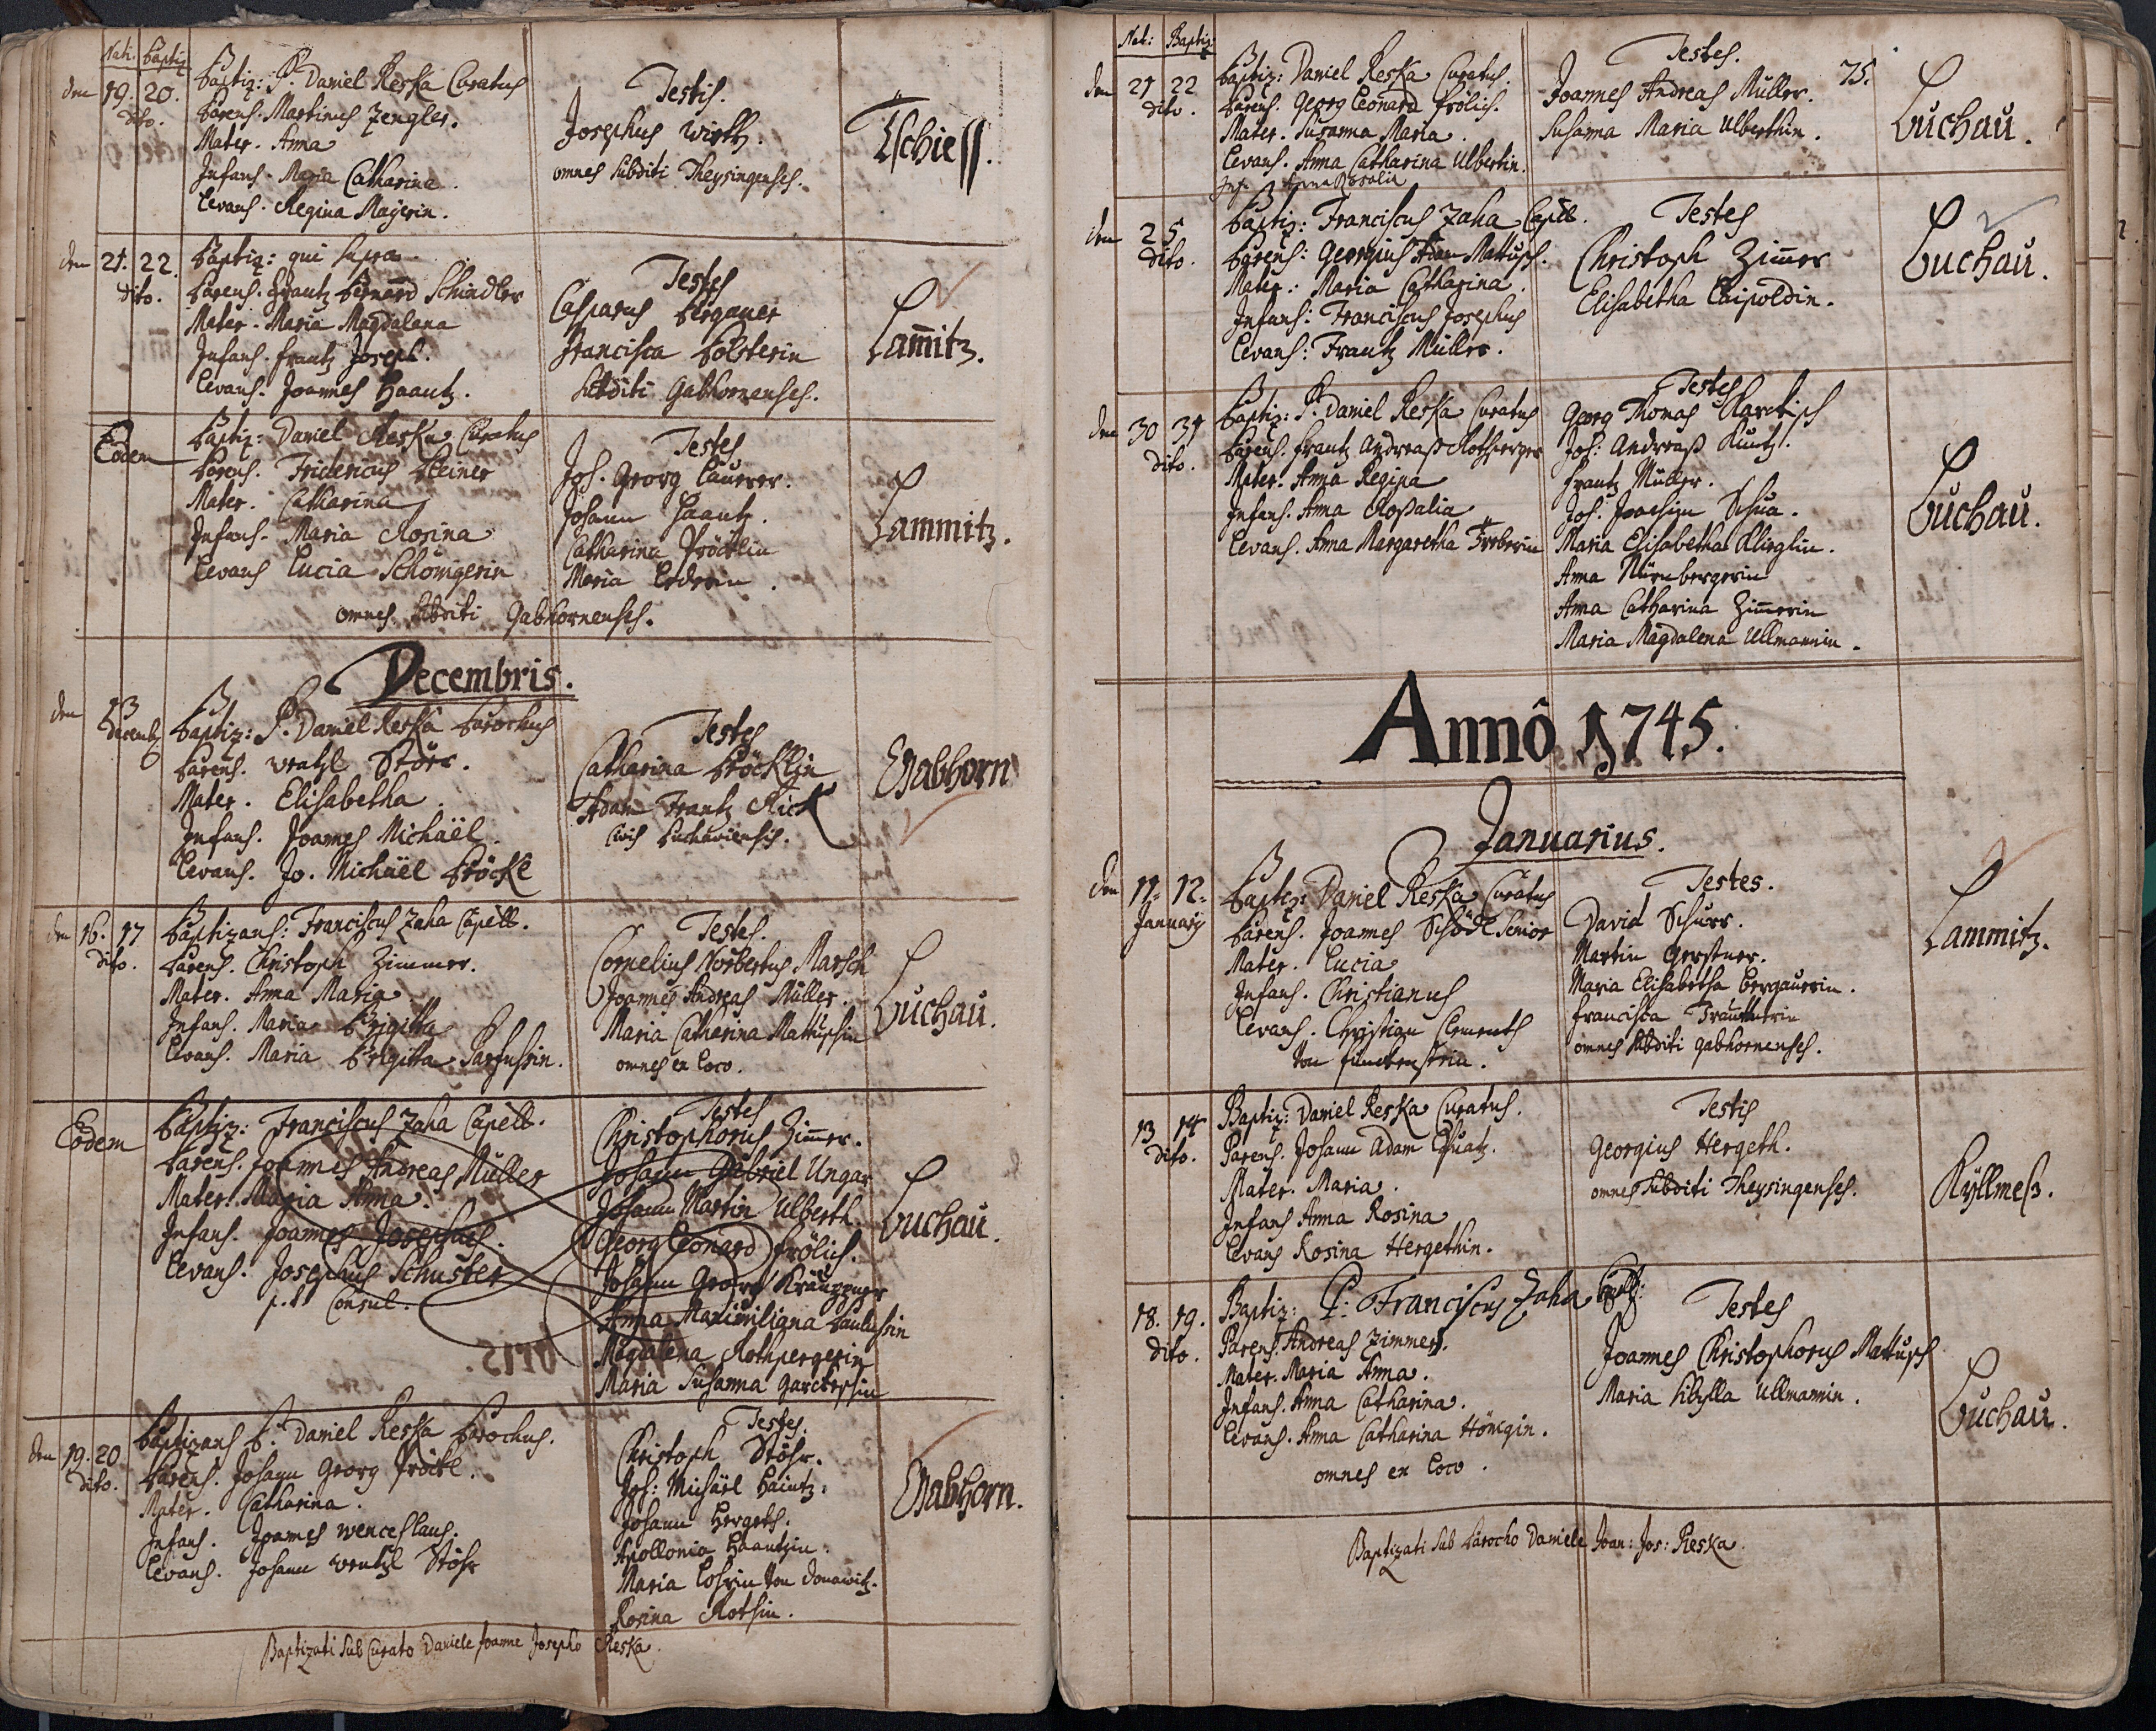 Nati. Baptiz
den 19. 20. dito.
Baptiz: P. Daniel Reska Curatus
Parens. Martinus Zengler.
Mater. Anna
Infans. Maria Catharina.
Levans. Regina Mayerin.
Testis.
Josephus Wirth.
omnes subditi Theysingenses.
Tschiess.
den 21. 22. dito.
Baptiz: qui supra
Parens. Frantz Bernard Schindler
Mater. Maria Magdalena
Infans. Frantz Joseph.
Levans. Joannes Haantz.
Testes
Casparus Bergauer
Francisca Bolsterin
subditi Gabhornenses.
Lam̄itz.
Eodem
Baptiz: Daniel Reska Curatus
Parens. Fridericus Steiner
Mater. Catharina
Infans. Maria Rosina
Levans Lucia Schönigerin
Testes
Joh. Georg Laurer.
Johann Haantz.
Catharina Pröcklin
Maria Lederin.
omnes subditi Gabhornenses.
Lammitz.
Decembris.
den 13 Decemb
Baptiz: P. Daniel Reska Parochus
Parens. Wentzl Störr.
Mater. Elisabetha.
Infans. Joannes Michäel.
Levans. Jo. Michäel Pröckl
Testes
Catharina Pröcklin
Adam Frantz Rick
Civis Luchaviensis.
Gabhorn
den 16. 17 dito.
Baptizans: Franciscus Zaha Capell.
Parens. Christoph Zimmer.
Mater. Anna Maria
Infans. Maria Brigitta
Levans. Maria Brigitta Parfussin.
Testes.
Cornelius Norbertus Marsch
Joannes Andreas Müller.
Maria Catharina Mattuschin
omnes ex Loco.
Luchau.
Eodem
Baptiz: Franciscus Zaha Capell.
Parens. Joannes Andreas Müller
Mater. Maria Anna.
Infans. Joannes Josephus.
Levans. Josephus Schuster
p. t. Consul.
Testes
Christophorus Zim̄er.
Johann Gabriel Ungar
Johann Martin Ulberth.
Georg Leonard Frölich.
Johann Georg
Anna Maximiliana Paulussin
Magdalena Rothpergerin
Maria Susanna
Luchau.
den 19. 20 dito.
Baptizans P. Daniel Reska Parochus.
Parens. Johann Georg Pröckl.
Mater. Catharina.
Infans. Joannes Wenceslaus.
Levans. Johann Wentzl Stöhr
Testes.
Christoph Stöhr.
Joh: Michäel Haintz.
Johann Hergeth.
Apollonia Haantzin.
Maria Lohrin von Donawitz.
Rosina Rothin.
Gabhorn.
Baptizati sub Curato Daniele Joanne Josepho Reska.
Nat: Baptiz:
75.
den 21 22 dito.
Baptiz: Daniel Reska Curatus.
Parens. Georg Leonard Frölich.
Mater. Susanna Maria.
Levans. Anna Catharina Ulbertin.
Inf. Anna Rosalia
Testes.
Joannes Andreas Müller.
Susanna Maria Ulberthin.
Luchau.
den 25 dito.
Baptiz: Franciscus Zaha Capell.
Parens: Georgius Adam Mattusch.
Mater.: Maria Catharina.
Infans: Franciscus Josephus
Levans: Frantz Müller.
Testes
Christoph Zim̄er
Elisabetha Leipoldin.
Luchau.
den 30 31 dito.
Baptiz: P. Daniel Reska Curatus
Parens. Frantz Andreaß Rothperger
Mater. Anna Regina
Infans. Anna Rosalia
Levans. Anna Margaretha
Testes
Georg Thomas
Joh: Andreaß Kuntz.
Frantz Müller.
Joh. Joachim Schua.
Maria Elisabetha
Anna Nürnbergerin
Anna Catharina Zim̄erin
Maria Magdalena Ullmannin.
Luchau.
Annô 1745.
Januarius.
den 11. 12. Januarij
Baptiz: Daniel Reska Curatus
Parens. Joannes Schödl Senior
Mater. Lucia
Infans. Christianus
Levans. Christian Clementh
von
Testes.
David Schurr.
Martin Gerstner.
Maria Elisabetha Bergauerin.
Francisca
omnes subditi gabhornenses.
Lammitz.
13 14 dito.
Baptiz: Daniel Reska Curatus.
Parens. Johann Adam
Mater. Maria.
Infans Anna Rosina
Levans Rosina Hergethin.
Testis
Georgius Hergeth.
omnes subditi Theysingenses.
Kyllmeß.
18. 19. dito.
Baptiz: P: Franciscus Zaha Capell:
Parens. Andreas Zimmer.
Mater. Maria Anna.
Infans. Anna Catharina.
Levans. Anna Catharina Hönigin.
omnes ex Loco.
Testes
Joannes Christophorus Mattusch
Maria Sibylla Ullmannin.
Luchau.
Baptizati sub Parocho Daniele Joan: Jos: Reska.